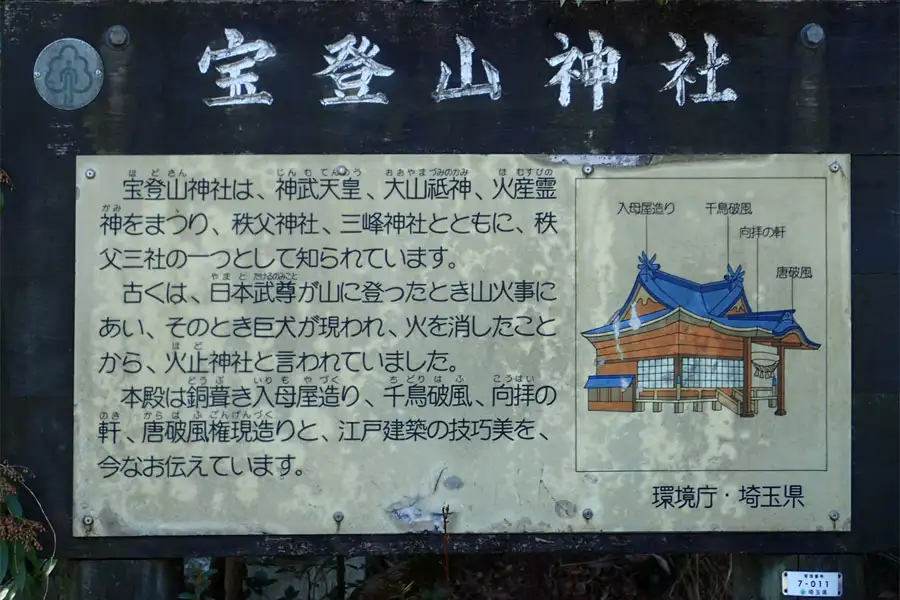 宝登山神社
宝登山神社は、神武天皇、大山祇神、火産霊
神をまつり、秩父神社、三峰神社とともに、秩
父三社の一つとして知られています。
古くは、日本武尊が山に登ったとき山火事に
あい、そのとき巨犬が現われ、火を消したこと
から、火止神社と言われていました。
本殿は銅葺き入母屋造り、千鳥破風、向拝の
軒、唐破風権現造りと、江戸建築の技巧美を、
今なお伝えています。
入母屋造り
千鳥破風
向拝の軒
唐破風
環境庁・埼玉県
7-011
埼玉県